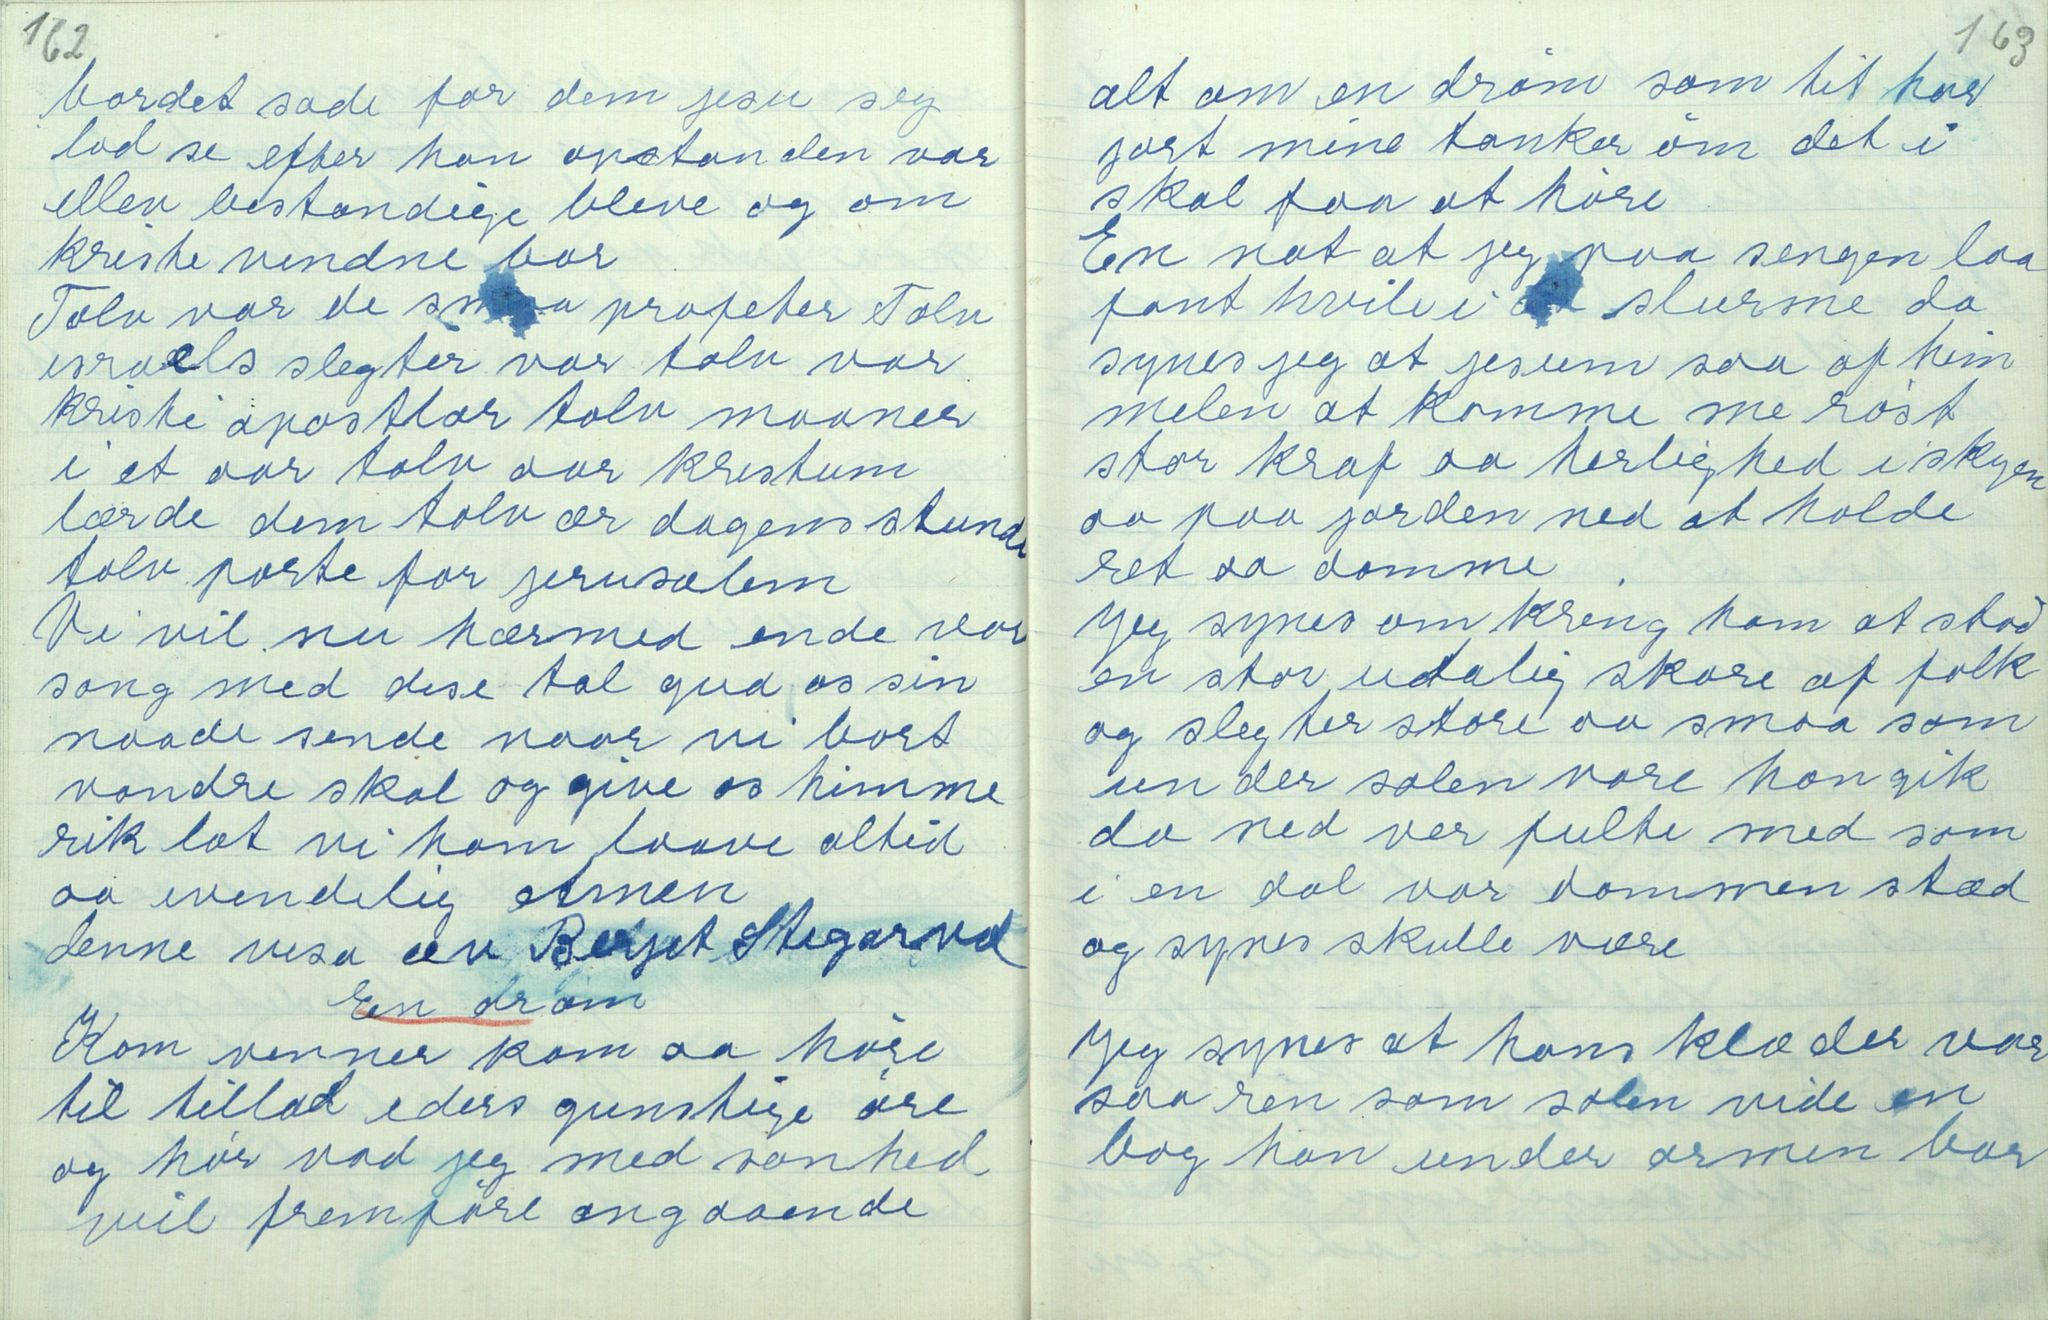 162
bordet sade for dem jesu seg
lod se efter han opstanden var
ellev bestandige bleve og om
kriste vendne bar
Tolv var de smaa profeter Tolv
israels slegter var tolv var
kristi apostlar tolv maaner
i et aar tolv aar kristum
lærde dem tolv ær dagens stunde
tolv porte for jerusalem
Vi vil nu hærmed ende vor
sang med dise tal gud os sin
naade sende naar vi bort
vandre skal og give os himme
rik lat vi ham loave altid
aa evendelig Amen
denne visa æv Berjet Stegarvd
En drøm
Kom venner kom aa høre
til tillad eders gunstige öre
og hör vad jeg med sanhed
vil fremföre angaaende
163
alt om en dröm som tit har
jort mine tanker om det i
skal faa at höre
En nat at jeg paa sengen laa
fant hvile i slurme da
synes jeg at jesum saa af him
melen at komme me röst
stor kraf aa herlighed i skyen
aa paa jorden ned at holde
ret aa domme
Jeg synes om kring ham at stod
en stor utalig skare af folk
og slegter store aa smaa som
under solen vare han gik
da ned ver fulte med som
i en dal var dommen stæd
og synes skulle være
Jeg synes at hans klæder var
saa ren som solen vide en
bog han under armen bar